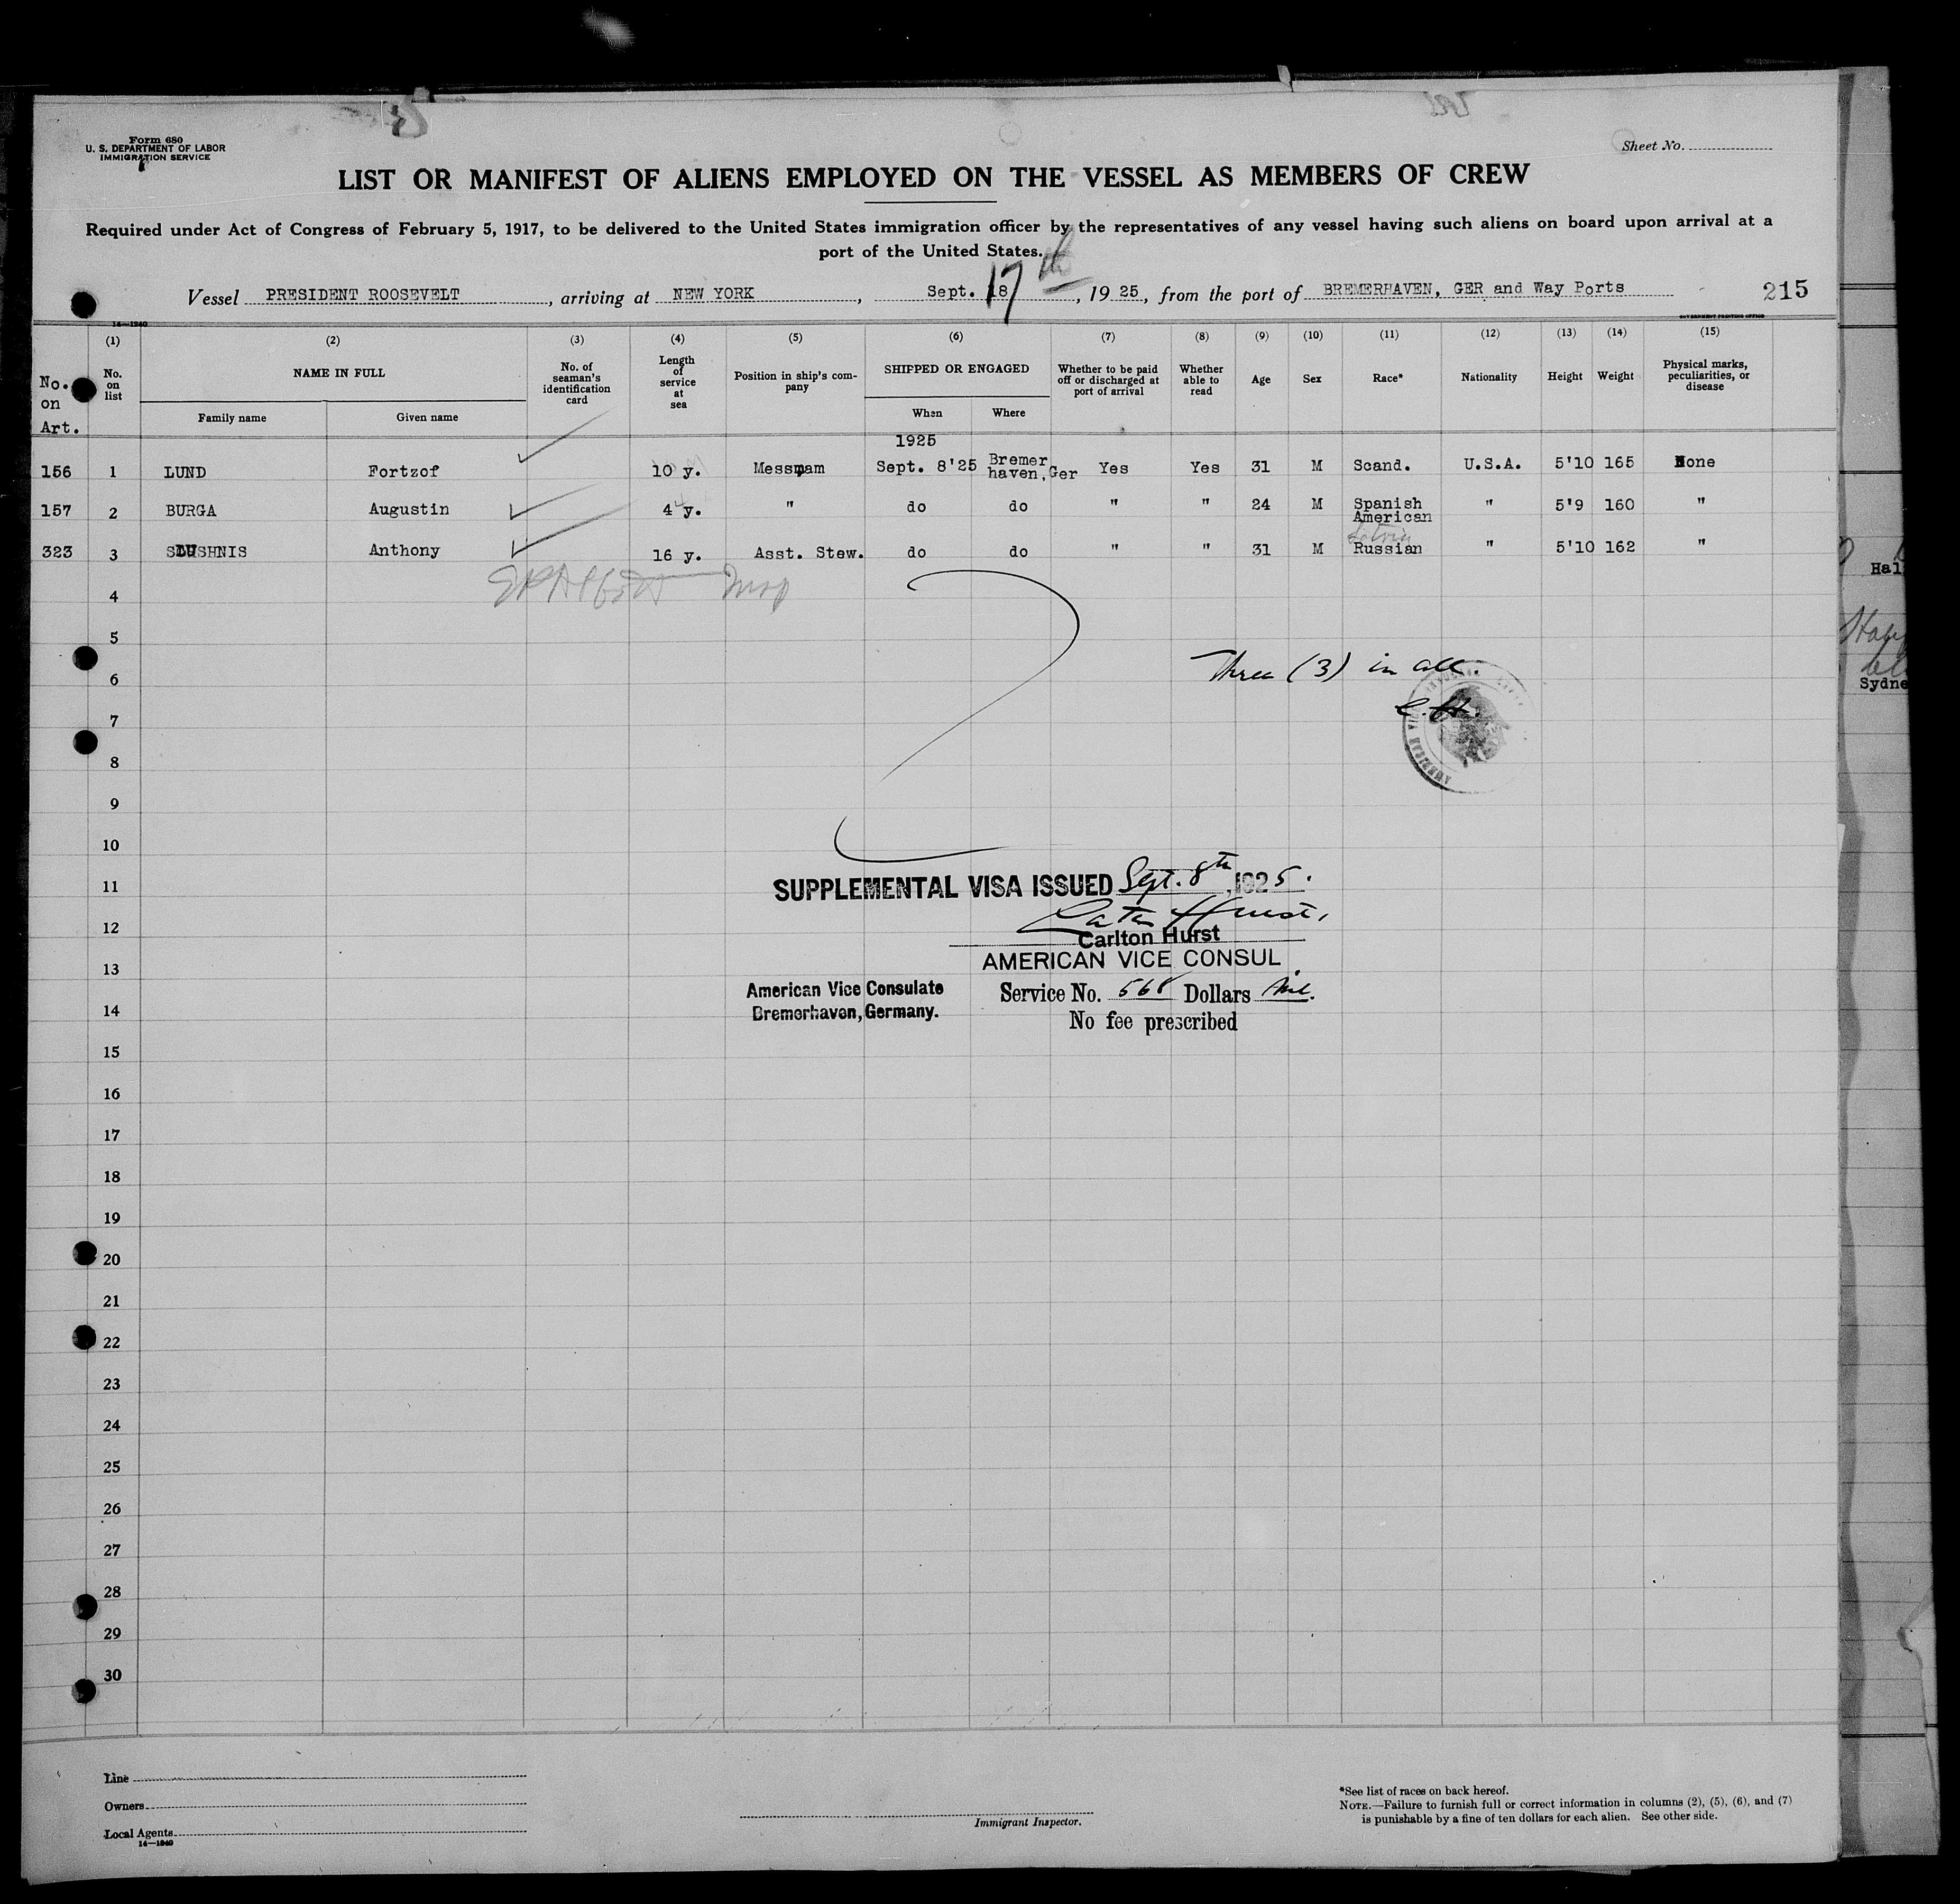 Form 680
U. S. DEPARTMENT OF LABOR
IMMIGRATION SERVICE
Sheet No.
LIST OR MANIFEST OF ALIENS EMPLOYED ON THE VESSEL AS MEMBERS OF CREW
Required under Act of Congress of February 5, 1917, to be delivered to the United States immigration officer by the representatives of any vessel having such aliens on board upon arrival at a
port of the United States.
Vessel PRESIDENT ROOSEVELT, arriving at NEW YORK, Sept. 18 17th, 1925, from the port of BREMERHAVEN, GER and Way Ports 215
14—1240 GOVERNMENT PRINTING OFFICE
(1) (2) (3) (4) (5) (6) (7) (8) (9) (10) (11) (12) (13) (14) (15)
No. on Art. No. on list NAME IN FULL Family name Given name No. of seaman's identification card Length of service at sea Position in ship's company SHIPPED OR ENGAGED When Where Whether to be paid off or discharged at port of arrival Whether able to read Age Sex Race* Nationality Height Weight Physical marks, peculiarities, or disease
1925
156 1 LUND Fortzof 10 y. Messmam Sept. 8'25 Bremerhaven, Ger Yes Yes 31 M Scand. U.S.A. 5'10 165 None
157 2 BURGA Augustin 4 y. " do do " " 24 M Spanish American " 5'9 160 "
Latvia
323 3 SLUSHNIS Anthony 16 y. Asst. Stew. do do " " 31 M Russian " 5'10 162 "
4
5
Three (3) in all.
6
C.H.
7
8
9
10
11 SUPPLEMENTAL VISA ISSUED Sept. 8th, 1925.
12 Carlton Hurst
Carlton Hurst
13 AMERICAN VICE CONSUL
American Vice Consulate Service No. 568 Dollars Nil.
14 Bremerhaven, Germany. No fee prescribed
15
16
17
18
19
20
21
22
23
24
25
26
27
28
29
30
Line
Owners
Local Agents
14—1240
Immigrant Inspector.
*See list of races on back hereof.
NOTE.—Failure to furnish full or correct information in columns (2), (5), (6), and (7)
is punishable by a fine of ten dollars for each alien. See other side.
Hal
Sydne